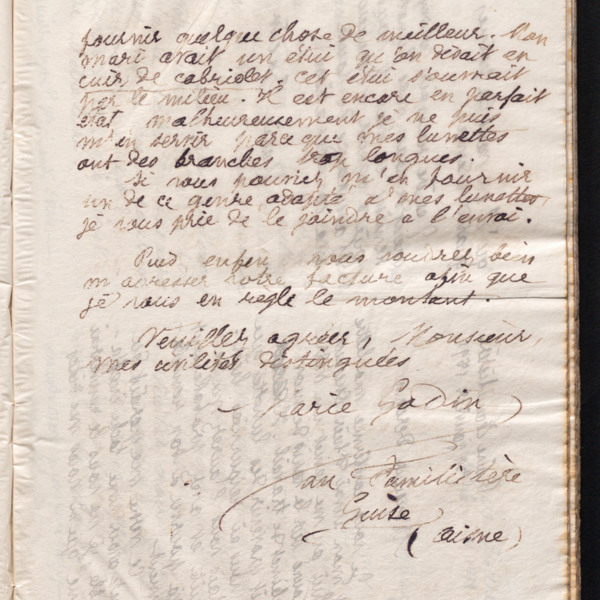 fournir quelque chose de meilleur. Mon
mari avait un étui qu'on disait en
cuir de cabriolet. cet étui s'ouvrait
par le milieu. Il est encore en parfait
état malheureusement je ne puis
m'en servir parce que mes lunettes
ont des branches trop longues.
Si vous pouviez m'en fournir
un de ce genre adapté à mes lunettes,
je vous prie de le joindre à l'envoi.
Puis enfin vous voudrez bien
m'adresser votre facture afin que
je vous en règle le montant.
Veuillez agréer, Monsieur,
mes civilités distinguées
Marie Godin
au Familistère
Guise
(aisne)